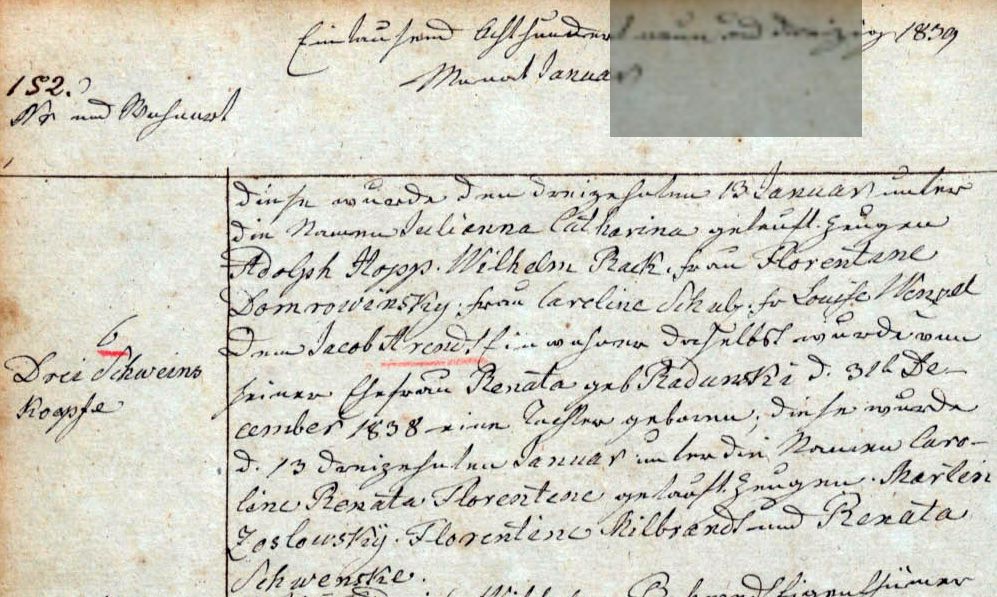 Eintausend Achthundert neun und dreizig 1839
Monat Januar
152.
Nr und Wohnort
diese wurde den dreizehnten 13 Januar unter
die Namen Julianna Catharina getauft. Zeugen
Adolph Hopp. Wilhelm Rack. frau Florentine
Domrowinsky. frau Careline Schulz. fr Louise Wenzel
6
Drei Schweins
Koepfe
Dem Jacob Arendt Einwohner daselbst wurde von
seiner Ehefrau Renata geb Radunski d. 31t De-
cember 1838 eine Tochter geboren, diese wurde
d. 13 dreizehnten Januar unter die Namen Caro-
line Renata Florentene getauft. Zeugen. Martin
Zoslowsky. Florentine Milbrandt und Renata
Schwenske.